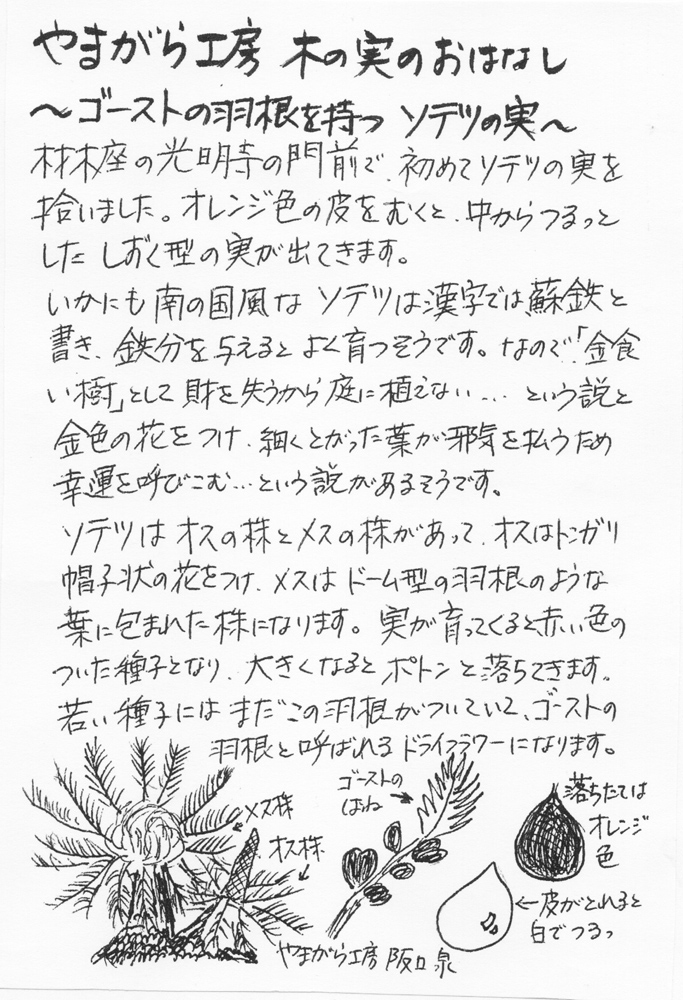 やまがら工房 木の実のおはなし
～ゴーストの羽根を持つ ソテツの実～
材木座の光明寺の門前で、初めてソテツの実を
拾いました。オレンジ色の皮をむくと、中からつるっと
した しずく型の実が出てきます。
いかにも南の国風な ソテツは漢字では、蘇鉄と
書き、鉄分を与えると よく育つそうです。なので「金食
い樹」として 財を失うから庭に植えない… という説と
金色の花をつけ、細くとがった葉が邪気を払うため
幸運を呼びこむ…という説があるそうです。
ソテツは オスの株とメスの株があって、オスはトンガリ
帽子状の花をつけ、メスは ドーム型の羽根のような
葉に包まれた株になります。 実が育ってくると赤い色の
ついた種子となり、大きくなると ポトンと落ちてきます。
若い種子には まだこの羽根がついていて、ゴーストの
羽根と呼ばれる ドライフラワーになります。
メス株
オス株
ゴーストの
はね
落ちたては
オレンジ
色
←皮がとれると
白でつるっ
やまがら工房 阪口 泉